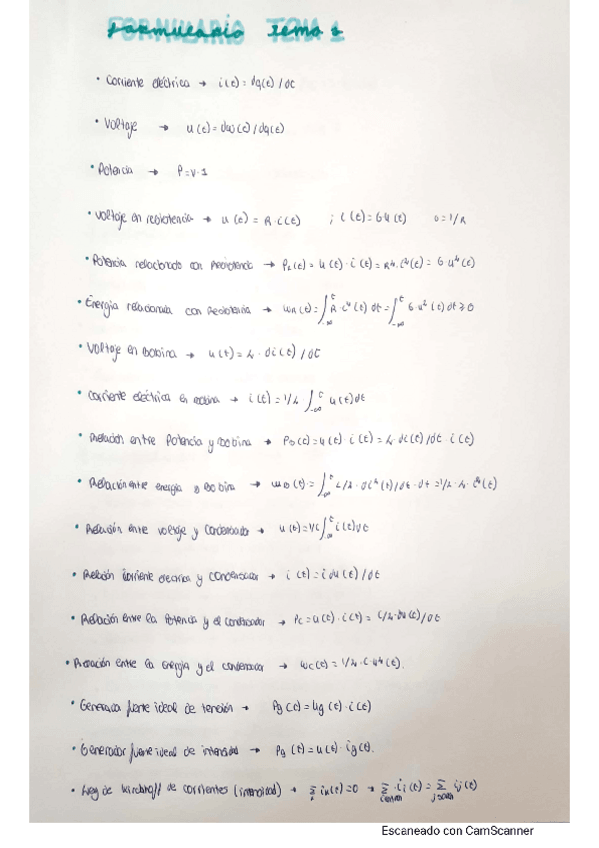 FORMULARIO TEMA 1
• Corriente eléctrica → i(t) = dq(t)/dt
• Voltaje → u(t) = dw(t)/dq(t)
• Potencia → P=V·I
• Voltaje en resistencia → u(t) = R·i(t) ; i(t) = G u(t) G=1/R
• Potencia relacionada con Resistencia → PR(t) = u(t)·i(t) = R·i²(t) = G u²(t)
• Energía relacionada con Resistencia → WR(t) = ∫_-∞^t R·i²(t) dt = ∫_-∞^t G·u²(t) dt ≥ 0
• Voltaje en Bobina → u(t) = L·di(t)/dt
• Corriente eléctrica en bobina → i(t) = 1/L ∫_-∞^t u(t)dt
• Relación entre Potencia y Bobina → Pb(t) = u(t)·i(t) = L·di(t)/dt·i(t)
• Relación entre energía y Bobina → wb(t) = ∫_-∞^t L/2·di²(t)/dt·dt = 1/2·L·i²(t)
• Relación entre voltaje y Condensador → u(t) = 1/C ∫_-∞^t i(t)dt
• Relación corriente electrica y condensador → i(t) = du(t)/dt
• Relación entre la Potencia y el condensador → Pc = u(t)·i(t) = C/2·du(t)/dt
• Relación entre la Energía y el condensador → Wc(t) = 1/2·C·u²(t).
• Generador fuente ideal de tensión → Pg(t) = Ug(t)·i(t)
• Generador fuente ideal de intensidad → Pg(t) = u(t)·ig(t).
• Ley de Kirchhoff de corrientes (intensidad) → Σ ik(t)=0 → Σ ii(t) = Σ ij(t)
Escaneado con CamScanner